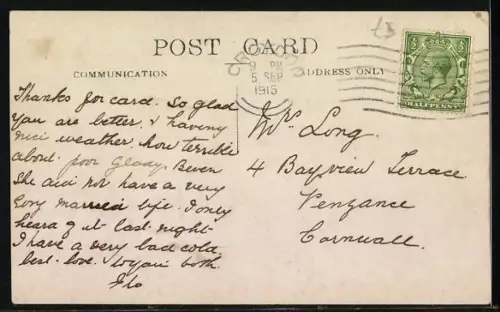 £3
POST CARD
COMMUNICATION
ADDRESS ONLY
CROYDON
9 PM
5 SEP
1915
HALFPENNY
Thanks for card. So glad
you are better, & having
nice weather, how terrible
about poor Gladys Bwen
She did not have a very
long married life. I only
heard of it last night
I have a very bad cold
best love. to you both.
Flo
Mrs Long.
4 Bayview Terrace
Penzance
Cornwall.